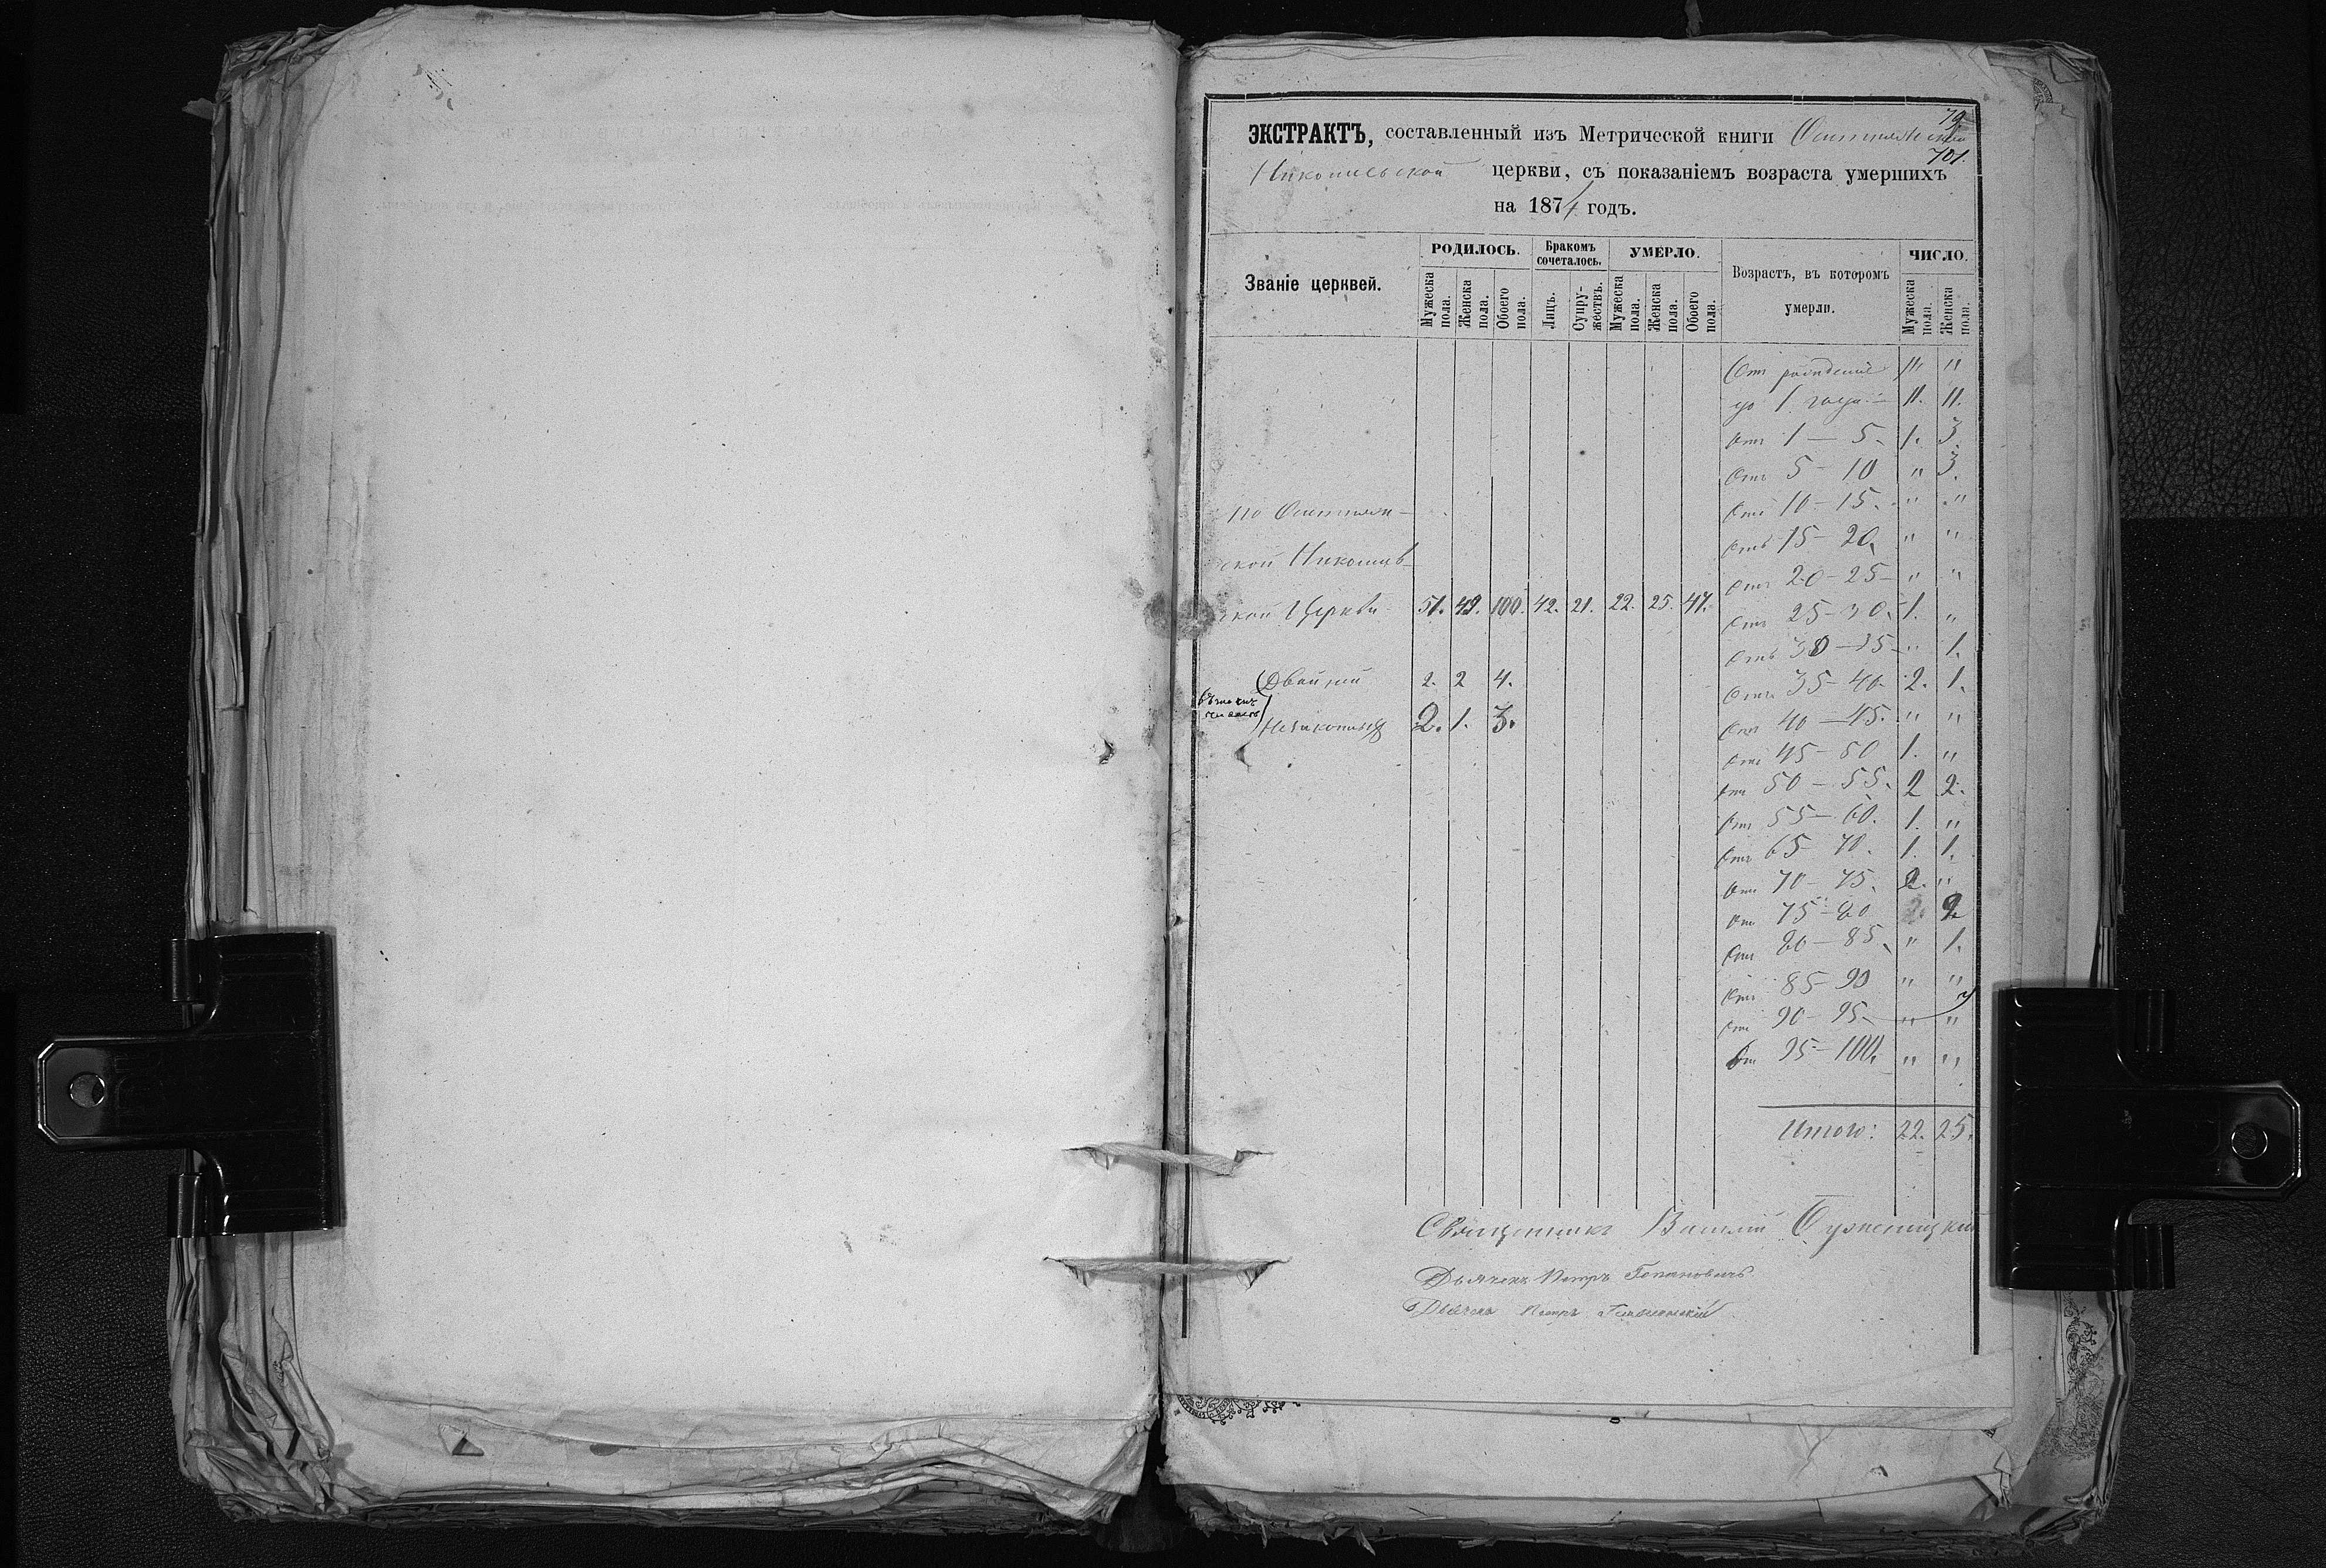 79
701.
ЭКСТРАКТЪ, составленный изъ Метрической книги
Николаевской церкви, съ показаніемъ возраста умершихъ
на 1874 годъ.
Званіе церквей.
РОДИЛОСЬ. Бракомъ сочеталось. УМЕРЛО. Возрастъ, въ которомъ умерли. ЧИСЛО.
Мужеска пола. Женска пола. Обоего пола. Лицъ. Супружествъ. Мужеска пола. Женска пола. Обоего пола. Мужеска пола. Женска пола.
Отъ рожденія " "
до 1 года – 11. 11.
Отъ 1 – 5. 1. 3.
Отъ 5 – 10 " 3.
Отъ 10 – 15. " "
Отъ 15 – 20. " "
Отъ 20 – 25 – " "
по
ской Николаев-
ской Церкви 51. 49. 100. 42. 21. 22. 25. 47.
Отъ 25 – 30. 1. "
Отъ 30 – 35 – " 1.
Двойни 2. 2 4.
Отъ 35 – 40. 2. 1.
въ томъ числѣ
Незаконныхъ 2. 1. 3.
Отъ 40 – 45. " "
Отъ 45 – 50 1. "
Отъ 50 – 55. 2 2.
Отъ 55 – 60. 1. "
Отъ 65 – 70. 1. 1.
Отъ 70 – 75. 2. "
Отъ 75 – 80 2.
Отъ 80 – 85. " 1.
Отъ 85 – 90 " "
Отъ 90 – 95. " "
Отъ 95 – 100. " "
Итого: 22. 25.
Священникъ Василій
Дьячекъ Петръ
Дьячекъ Петръ